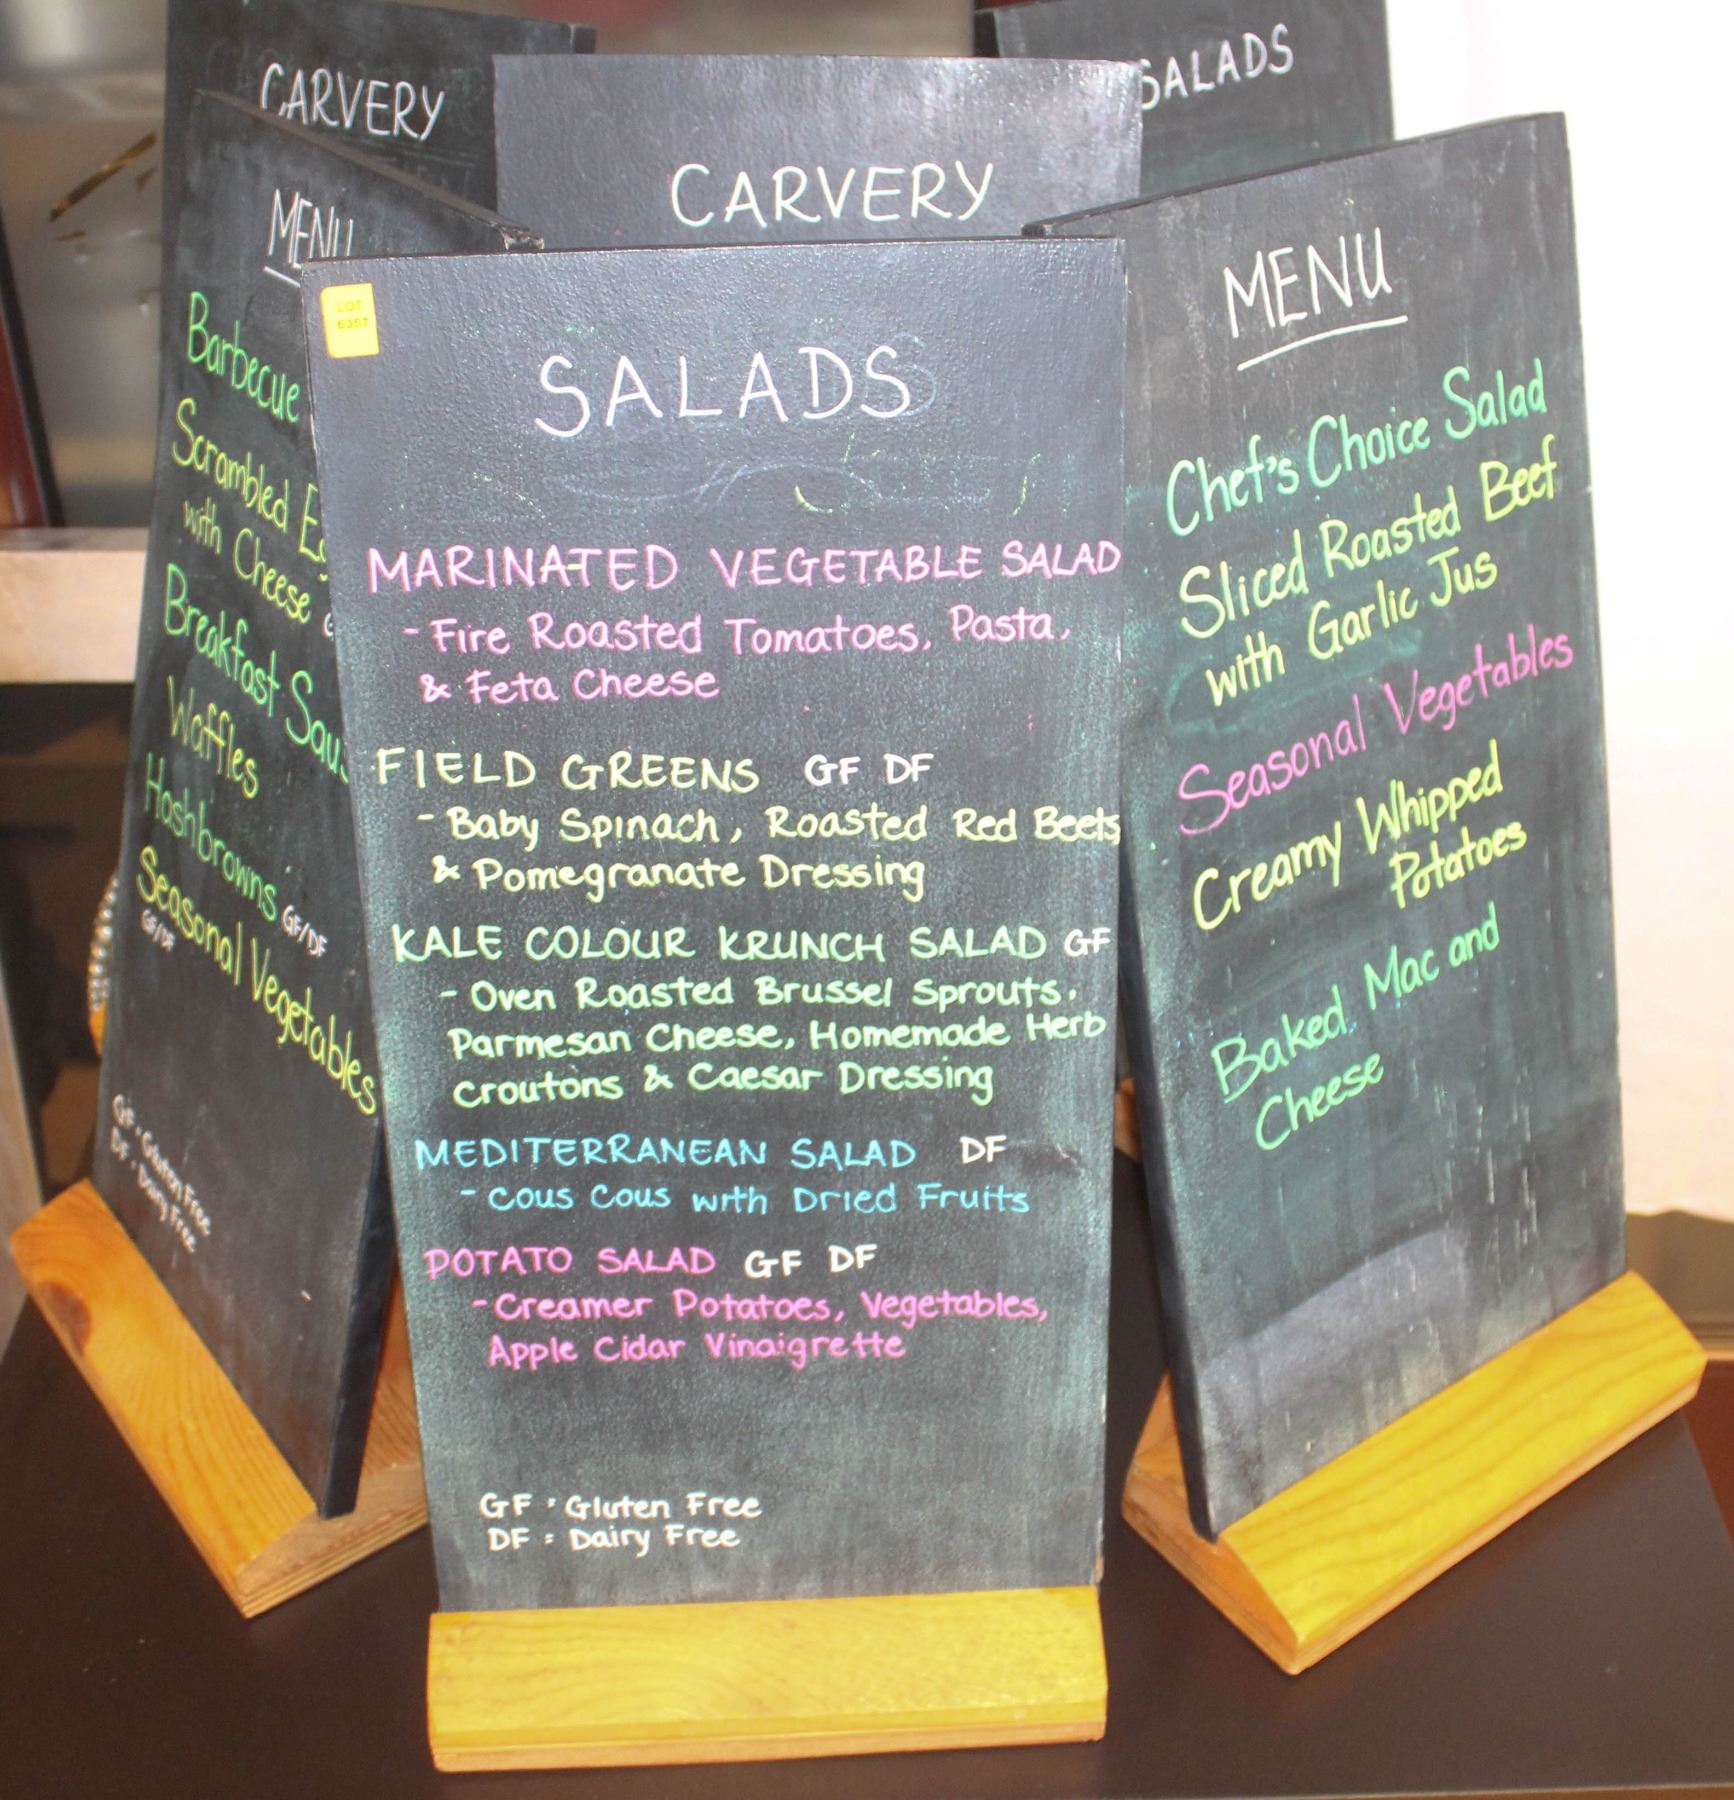 CARVERY
SALADS
CARVERY
MENU
Barbecue
Scrambled
with Cheese
Breakfast
Waffles
Hashbrowns GF/DF
Seasonal Vegetables
GF/DF
GF : Gluten Free
DF : Dairy Free
LOT
6357
SALADS
MARINATED VEGETABLE SALAD
- Fire Roasted Tomatoes, Pasta,
& Feta Cheese
FIELD GREENS GF DF
- Baby Spinach, Roasted Red Beets
& Pomegranate Dressing
KALE COLOUR KRUNCH SALAD GF
- Oven Roasted Brussel Sprouts,
Parmesan Cheese, Homemade Herb
Croutons & Caesar Dressing
MEDITERRANEAN SALAD DF
- Cous Cous with Dried Fruits
POTATO SALAD GF DF
- Creamer Potatoes, Vegetables,
Apple Cidar Vinaigrette
GF : Gluten Free
DF : Dairy Free
MENU
Chef's Choice Salad
Sliced Roasted Beef
with Garlic Jus
Seasonal Vegetables
Creamy Whipped
Potatoes
Baked Mac and
Cheese